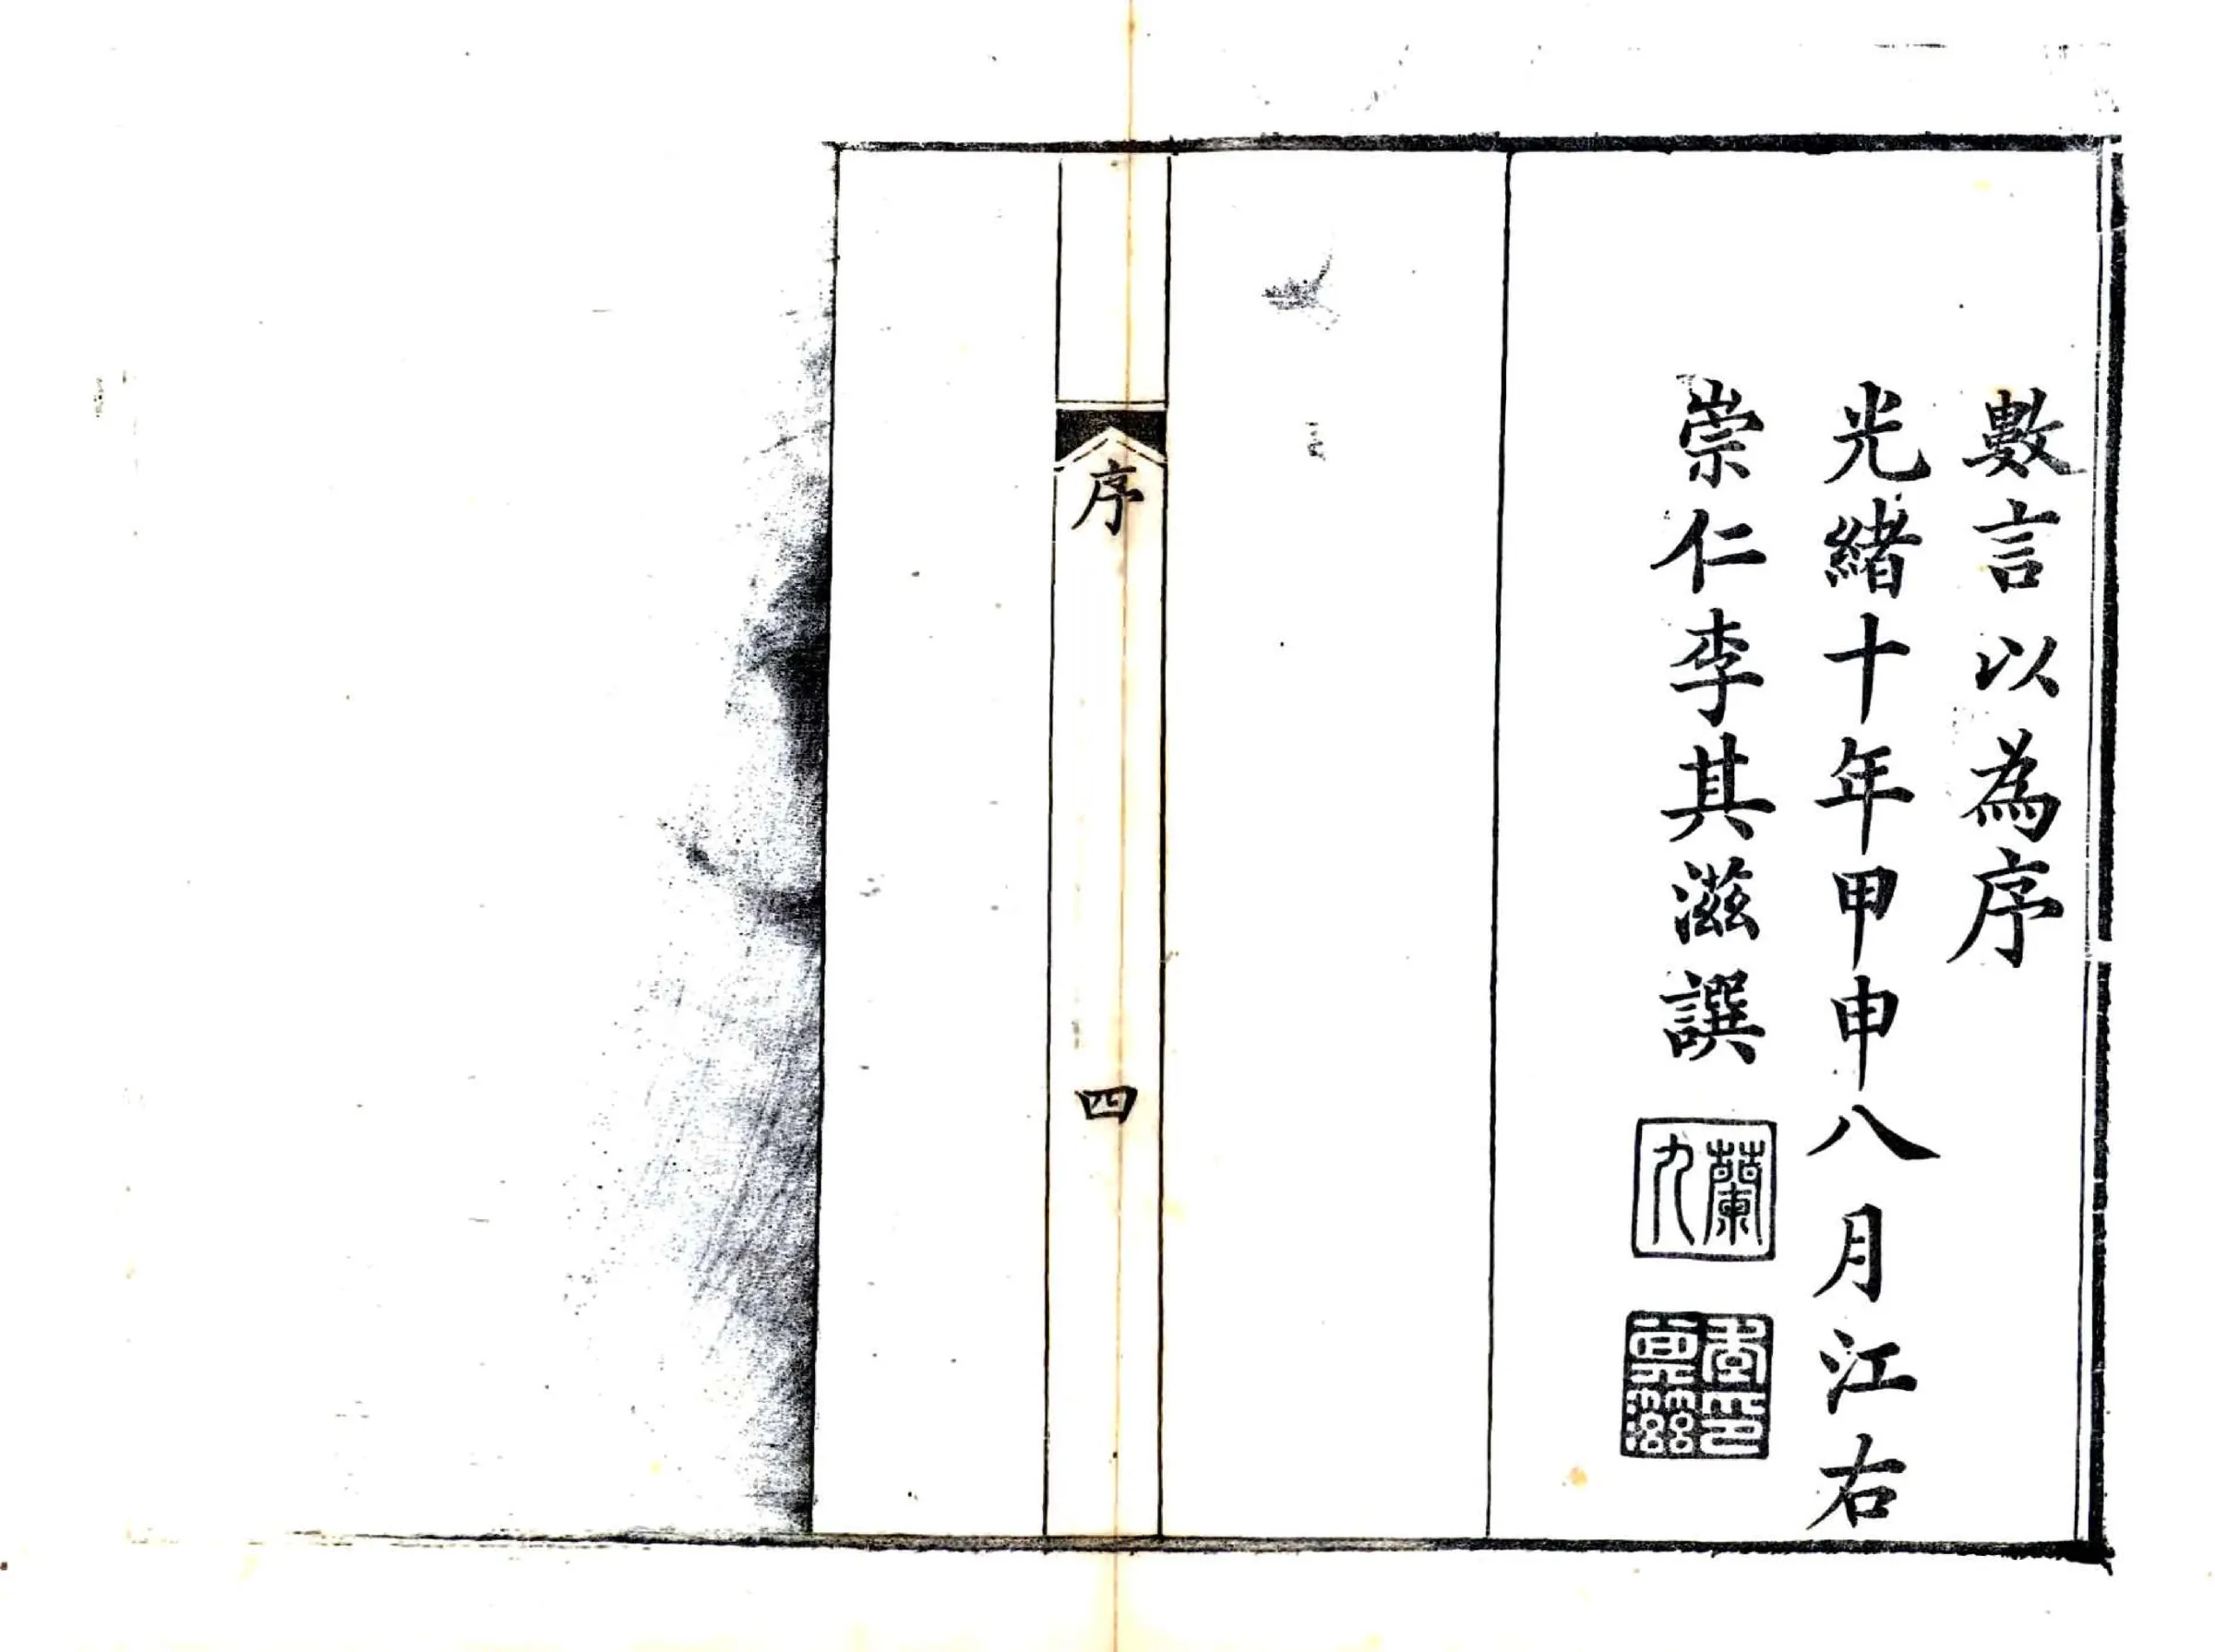 數言以為序
光緒十年甲申八月江右
崇仁李其滋譔
蘭九
李印其滋
序
四